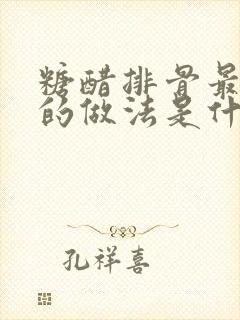 糖醋排骨最
的做法是什
孔祥喜